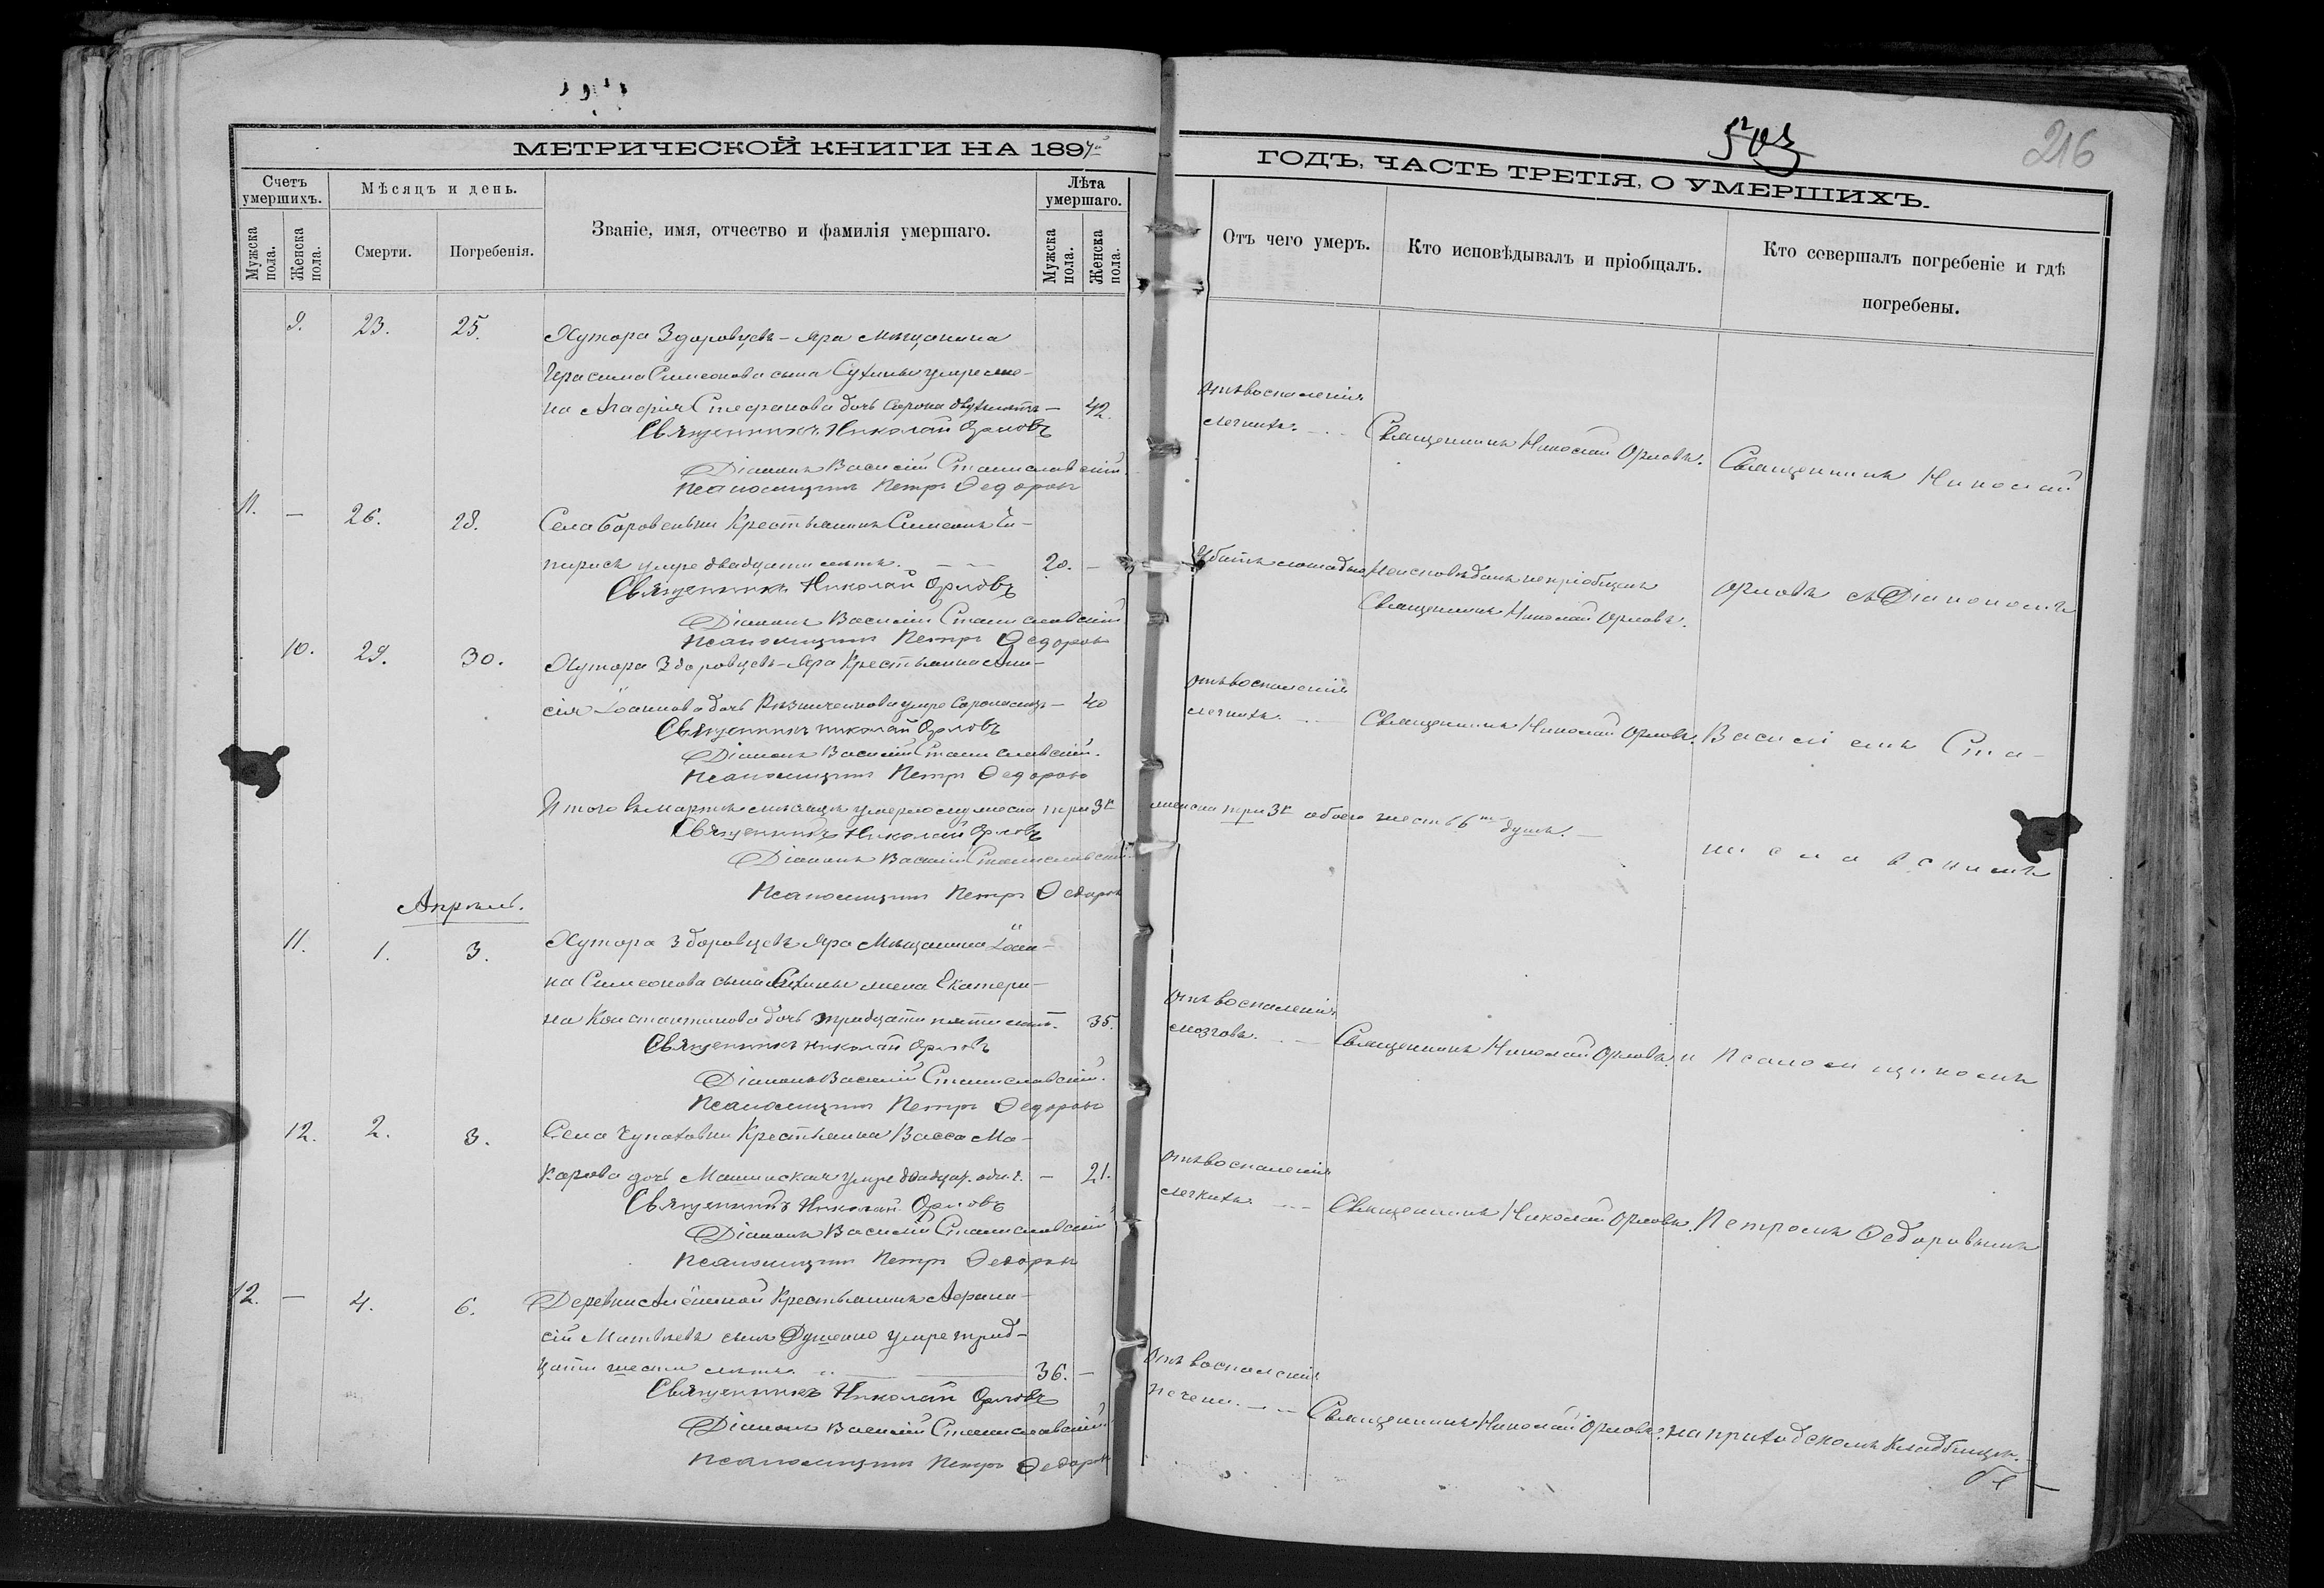 503
216
МЕТРИЧЕСКОЙ КНИГИ НА 1897й
ГОДЪ, ЧАСТЬ ТРЕТІЯ, О УМЕРШИХЪ.
Счетъ умершихъ.
Мужска пола.
Женска пола.
Мѣсяцъ и день.
Смерти.
Погребенія.
Званіе, имя, отчество и фамилія умершаго.
Лѣта умершаго.
Мужска пола.
Женска пола.
Отъ чего умеръ.
Кто исповѣдывалъ и пріобщалъ.
Кто совершалъ погребеніе и гдѣ
погребены.
9. 23. 25. Хутора Здоровцевъ-Яра Мѣщанина
Герасима Симеонова сына Сухины умре же-
на Агафія Стефанова дочь сорока двухъ лѣтъ — 42.
Отъ воспаленія
легкихъ. Священникъ Николай Орловъ.
Священникъ Николай Орловъ
Діаконъ Василій Станиславскій.
Псаломщикъ Петръ Ѳедоровъ
11. — 26. 28. Села Боровеньки Крестьянинъ Симеонъ Чи-
умре двадцати лѣтъ. — 20. —
Убитъ лошадью Неисповѣданъ непріобщенъ
Священникъ Николай Орловъ.
Священникъ Николай Орловъ
Діаконъ Василій Станиславскій
Псаломщикъ Петръ Ѳедоровъ
10. 29. 30. Хутора Здоровцевъ-Яра Крестьянка Ани-
сія Іоаннова дочь умре сорока лѣтъ — 40
Отъ воспаленія
легкихъ. Священникъ Николай Орловъ.
Священникъ Николай Орловъ
Діаконъ Василій Станиславскій.
Псаломщикъ Петръ Ѳедоровъ
Итого въ мартѣ мѣсяцѣ умерло мужеска три 3х женска три 3х обоего шесть 6ть душъ. —
Священникъ Николай Орловъ
Діаконъ Василій Станиславскій
Псаломщикъ Петръ Ѳедоровъ
Апрѣль.
11. 1. 3. Хутора Здоровцевъ Яра Мѣщанина Іоан-
на Симеонова сына Сухины жена Екатери-
на Константинова дочь тридцати пяти лѣтъ. 35.
Отъ воспаленія
мозговъ. — Священникъ Николай Орловъ.
Священникъ Николай Орловъ
Діаконъ Василій Станиславскій.
Псаломщикъ Петръ Ѳедоровъ
12. 2. 3. Села Чупаховки Крестьянка Васса Ма-
карова дочь умре двадцат. одн. г. — 21.
Отъ воспаленія
легкихъ. — Священникъ Николай Орловъ.
Священникъ Николай Орловъ
Діаконъ Василій Станиславскій
Псаломщикъ Петръ Ѳедоровъ
12. — 4. 6. Деревни Алёшиной Крестьянинъ Аѳана-
сій Матвѣевъ сынъ Душенко умре трид-
цати шести лѣтъ. — 36. —
Отъ воспаленія
печени. — Священникъ Николай Орловъ.
Священникъ Николай Орловъ
Діаконъ Василій Станиславскій
Псаломщикъ Петръ Ѳедоровъ
Священникъ Николай
Орловъ съ Діакономъ
Василіемъ Ста-
ниславскимъ
и Псаломщикомъ
Петромъ Ѳедоровымъ
на приходскомъ кладбищѣ.